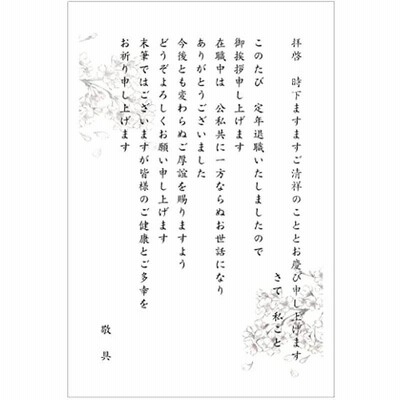 拝啓　時下ますますご清祥のこととお慶び申し上げます
さて　私こと
このたび　定年退職いたしましたので
御挨拶申し上げます
在職中は　公私共に一方ならぬお世話になり
ありがとうございました
今後とも変わらぬご厚誼を賜りますよう
どうぞよろしくお願い申し上げます
末筆ではございますが皆様のご健康とご多幸を
お祈り申し上げます
敬具